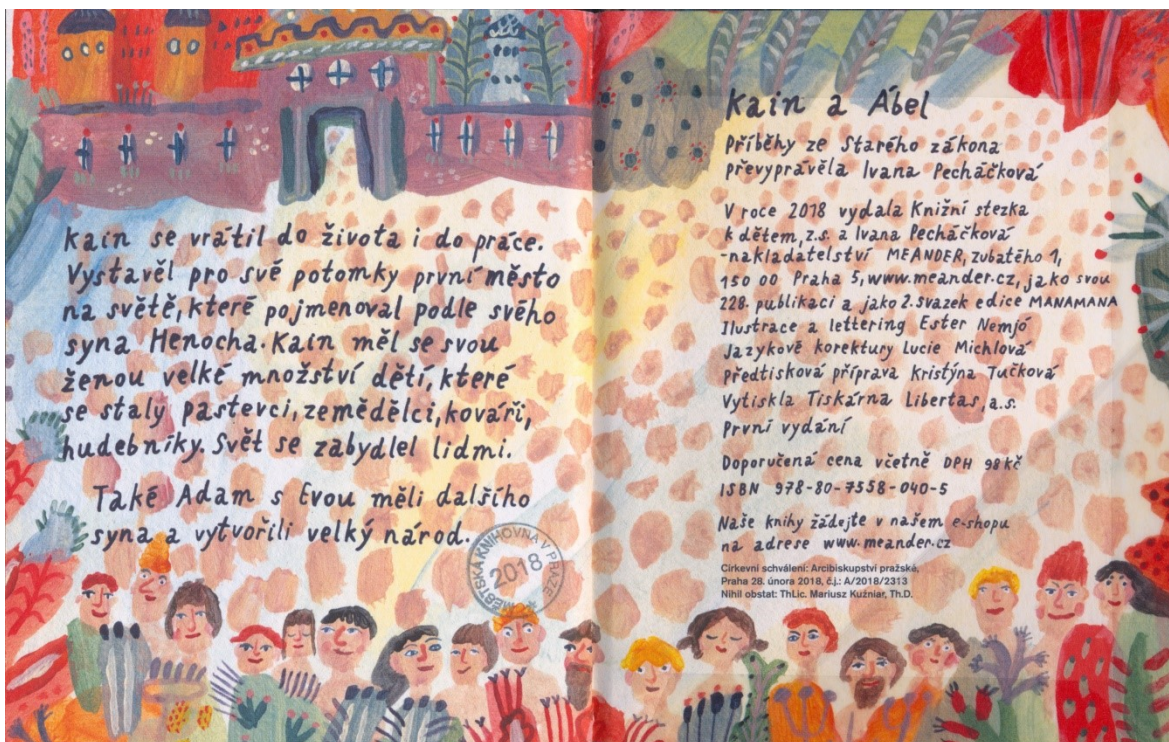 Kain se vrátil do života i do práce.
Vystavěl pro své potomky první město
na světě, které pojmenoval podle svého
syna Henocha. Kain měl se svou
ženou velké množství dětí, které
se staly pastevci, zemědělci, kováři,
hudebníky. Svět se zabydlel lidmi.
Také Adam s Evou měli dalšího
syna a vytvořili velký národ.
MĚSTSKÁ KNIHOVNA V PRAZE
2018
Kain a Ábel
Příběhy ze Starého zákona
převyprávěla Ivana Pecháčková
V roce 2018 vydala Knižní stezka
k dětem, z.s. a Ivana Pecháčková
-nakladatelství MEANDER, Zubatého 1,
150 00 Praha 5, www.meander.cz, jako svou
228. publikaci a jako 2. svazek edice MANAMANA
Ilustrace a lettering Ester Nemjó
Jazykové korektury Lucie Michlová
Předtisková příprava Kristýna Tučková
Vytiskla Tiskárna Libertas, a.s.
První vydání
Doporučená cena včetně DPH 98 kč
ISBN 978-80-7558-040-5
Naše knihy žádejte v našem e-shopu
na adrese www.meander.cz
Církevní schválení: Arcibiskupství pražské,
Praha 28. února 2018, č.j.: A/2018/2313
Nihil obstat: ThLic. Mariusz Kuźniar, Th.D.